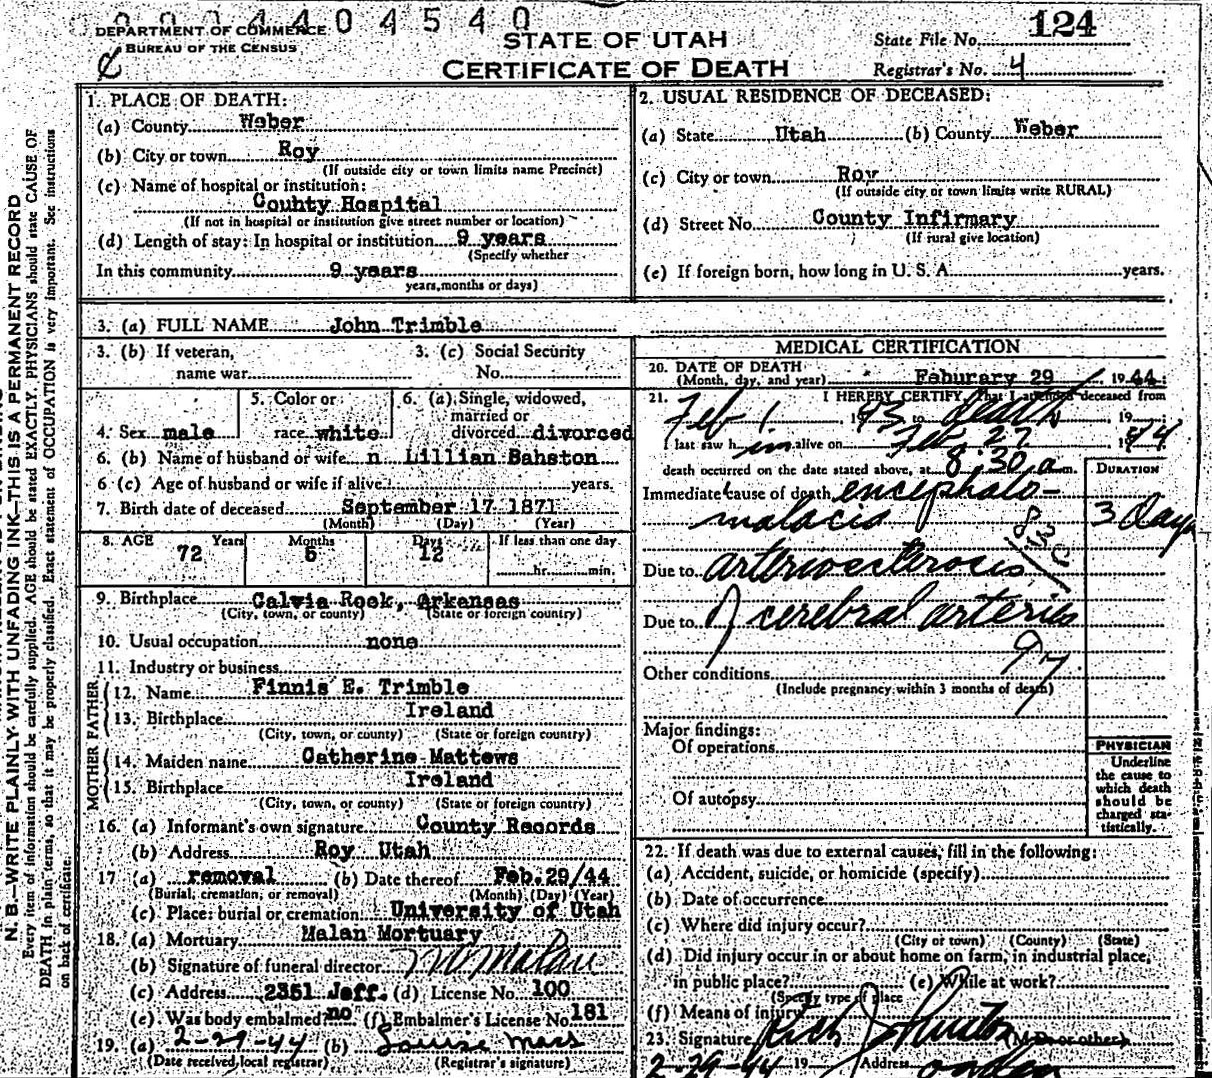 0004404540
DEPARTMENT OF COMMERCE
BUREAU OF THE CENSUS
STATE OF UTAH
CERTIFICATE OF DEATH
State File No. 124
Registrar's No. 4
N. B.—WRITE PLAINLY WITH UNFADING INK—THIS IS A PERMANENT RECORD
Every item of information should be carefully supplied. AGE should be stated EXACTLY. PHYSICIANS should state CAUSE OF
DEATH in plain terms, so that it may be properly classified. Exact statement of OCCUPATION is very important. See instructions
on back of certificate.
1. PLACE OF DEATH:
(a) County Weber
(b) City or town Roy
(If outside city or town limits name Precinct)
(c) Name of hospital or institution:
County Hospital
(If not in hospital or institution give street number or location)
(d) Length of stay: In hospital or institution 9 years
(Specify whether
In this community 9 years
years, months or days)
2. USUAL RESIDENCE OF DECEASED:
(a) State Utah (b) County Weber
(c) City or town Roy
(If outside city or town limits write RURAL)
(d) Street No. County Infirmary
(If rural give location)
(e) If foreign born, how long in U. S. A. years.
3. (a) FULL NAME John Trimble
3. (b) If veteran, 3. (c) Social Security
name war No.
5. Color or 6. (a) Single, widowed,
married or
4. Sex male race white divorced divorced
6. (b) Name of husband or wife n Lillian Bahston
6 (c) Age of husband or wife if alive years.
7. Birth date of deceased September 17 1871
(Month) (Day) (Year)
8. AGE Years Months Days If less than one day
72 5 12 hr. min.
9. Birthplace Calvia Rock, Arkansas
(City, town, or county) (State or foreign country)
10. Usual occupation none
11. Industry or business
MOTHER FATHER
12. Name Finnis E. Trimble
13. Birthplace Ireland
(City, town, or county) (State or foreign country)
14. Maiden name Catherine Mattews
15. Birthplace Ireland
(City, town, or county) (State or foreign country)
16. (a) Informant's own signature County Records
(b) Address Roy Utah
17 (a) removal (b) Date thereof Feb.29/44
(Burial, cremation, or removal) (Month) (Day) (Year)
(c) Place: burial or cremation University of Utah
18. (a) Mortuary Malan Mortuary
(b) Signature of funeral director Malan
(c) Address 2351 Jeff. (d) License No. 100
(e) Was body embalmed? no (f) Embalmer's License No. 181
19. (a) 2-29-44 (b) Louise
(Date received local registrar) (Registrar's signature)
MEDICAL CERTIFICATION
20. DATE OF DEATH
(Month, day, and year) Feburary 29, 1944
21. I HEREBY CERTIFY, That I attended deceased from
Feb 1, 1943 to death, 19
last saw him alive on Feb 27 1944
death occurred on the date stated above, at 8:30 a m.
DURATION
Immediate cause of death encephalo-
malacis 3 days
83C
Due to arteriosclerosis
Due to of cerebral arteries
97
Other conditions
(Include pregnancy within 3 months of death)
Major findings:
Of operations
Of autopsy
PHYSICIAN
Underline
the cause to
which death
should be
charged sta-
tistically.
22. If death was due to external causes, fill in the following:
(a) Accident, suicide, or homicide (specify)
(b) Date of occurrence
(c) Where did injury occur?
(City or town) (County) (State)
(d) Did injury occur in or about home on farm, in industrial place,
in public place? (e) While at work?
(Specify type of place
(f) Means of injury
23. Signature Rich Johnston (M.D. or other)
2-29-44 19 Address Ogden